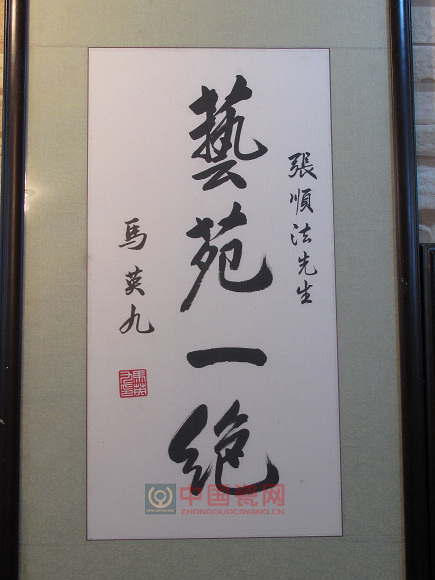 張順法先生
藝苑一絕
馬英九
中国瓷网
ZHONGGUOCIWANG.CN